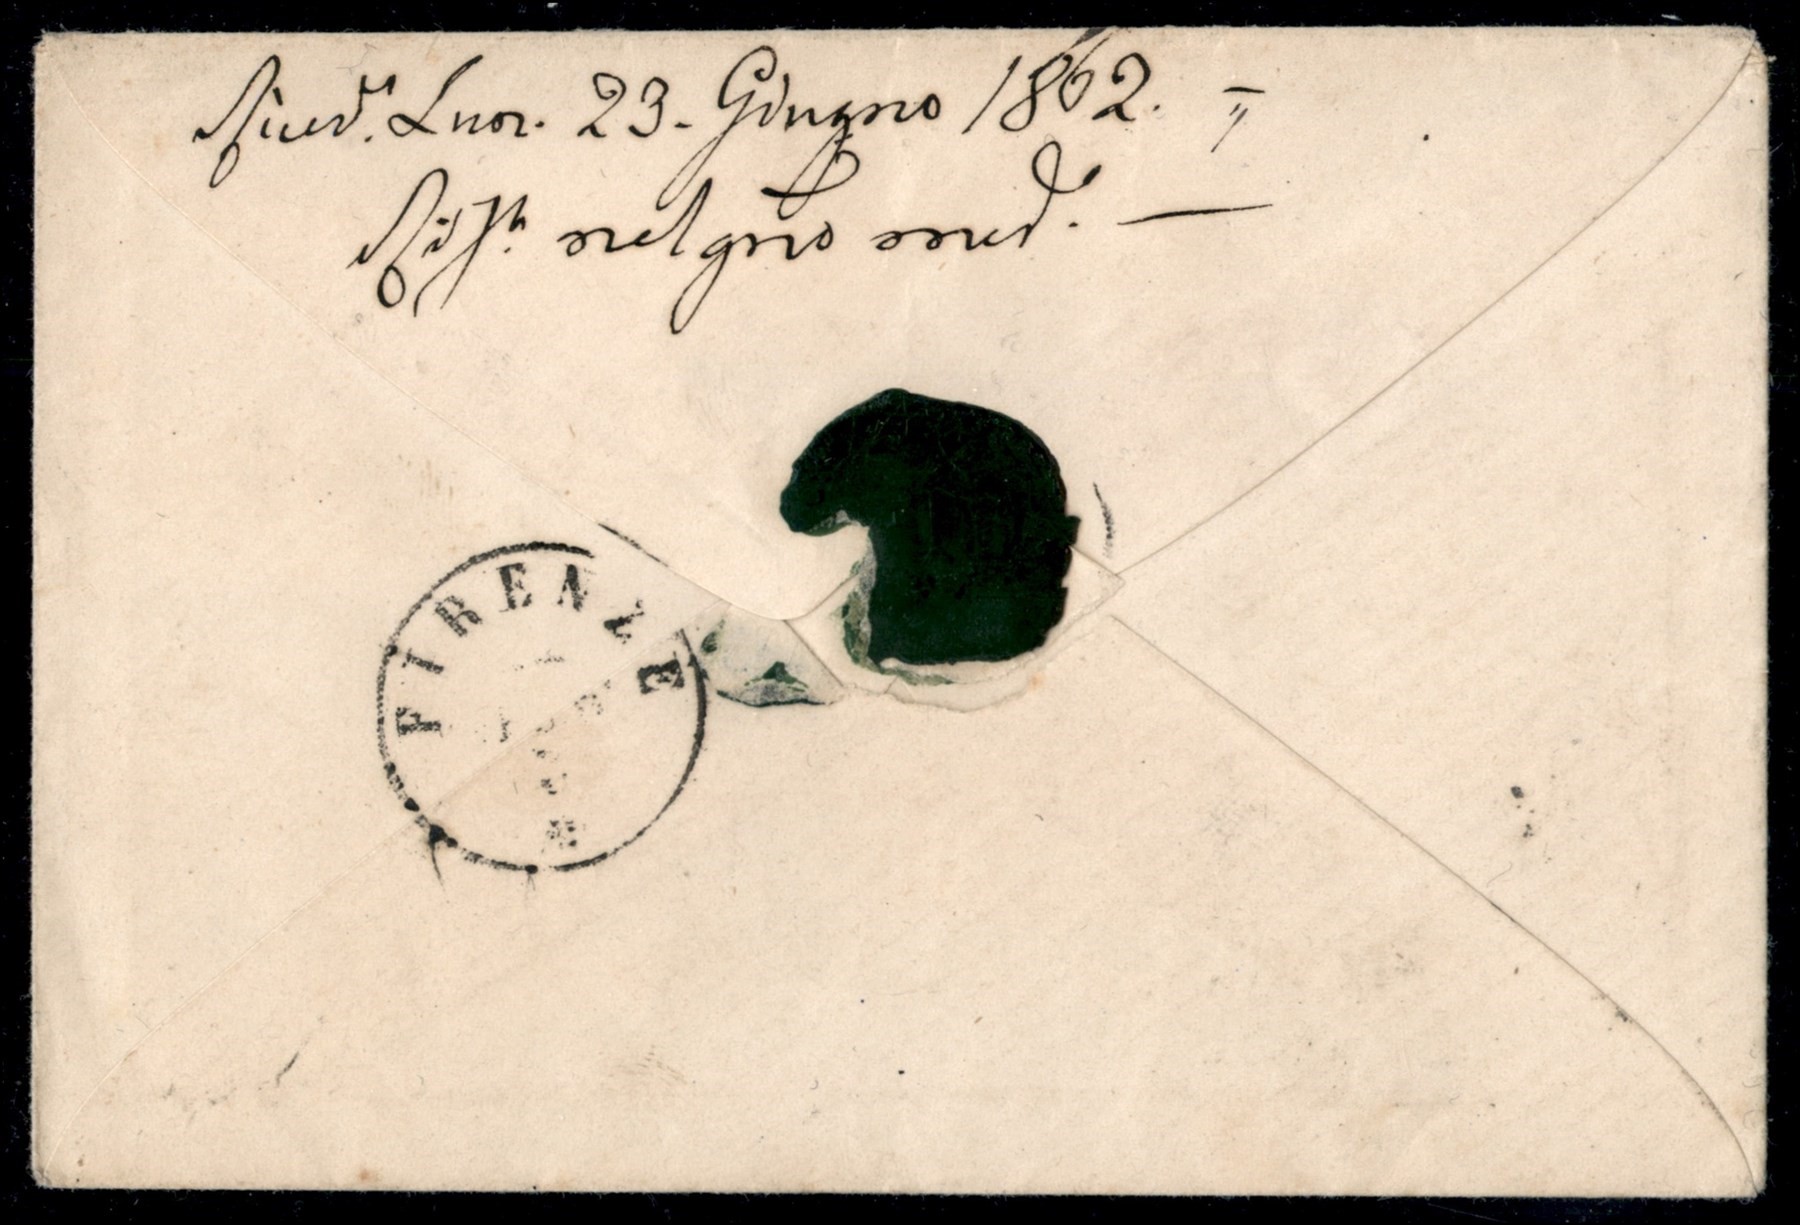 Riced. Luor. 23. Giugno 1862.
Risp. nel gno med.
FIRENZE